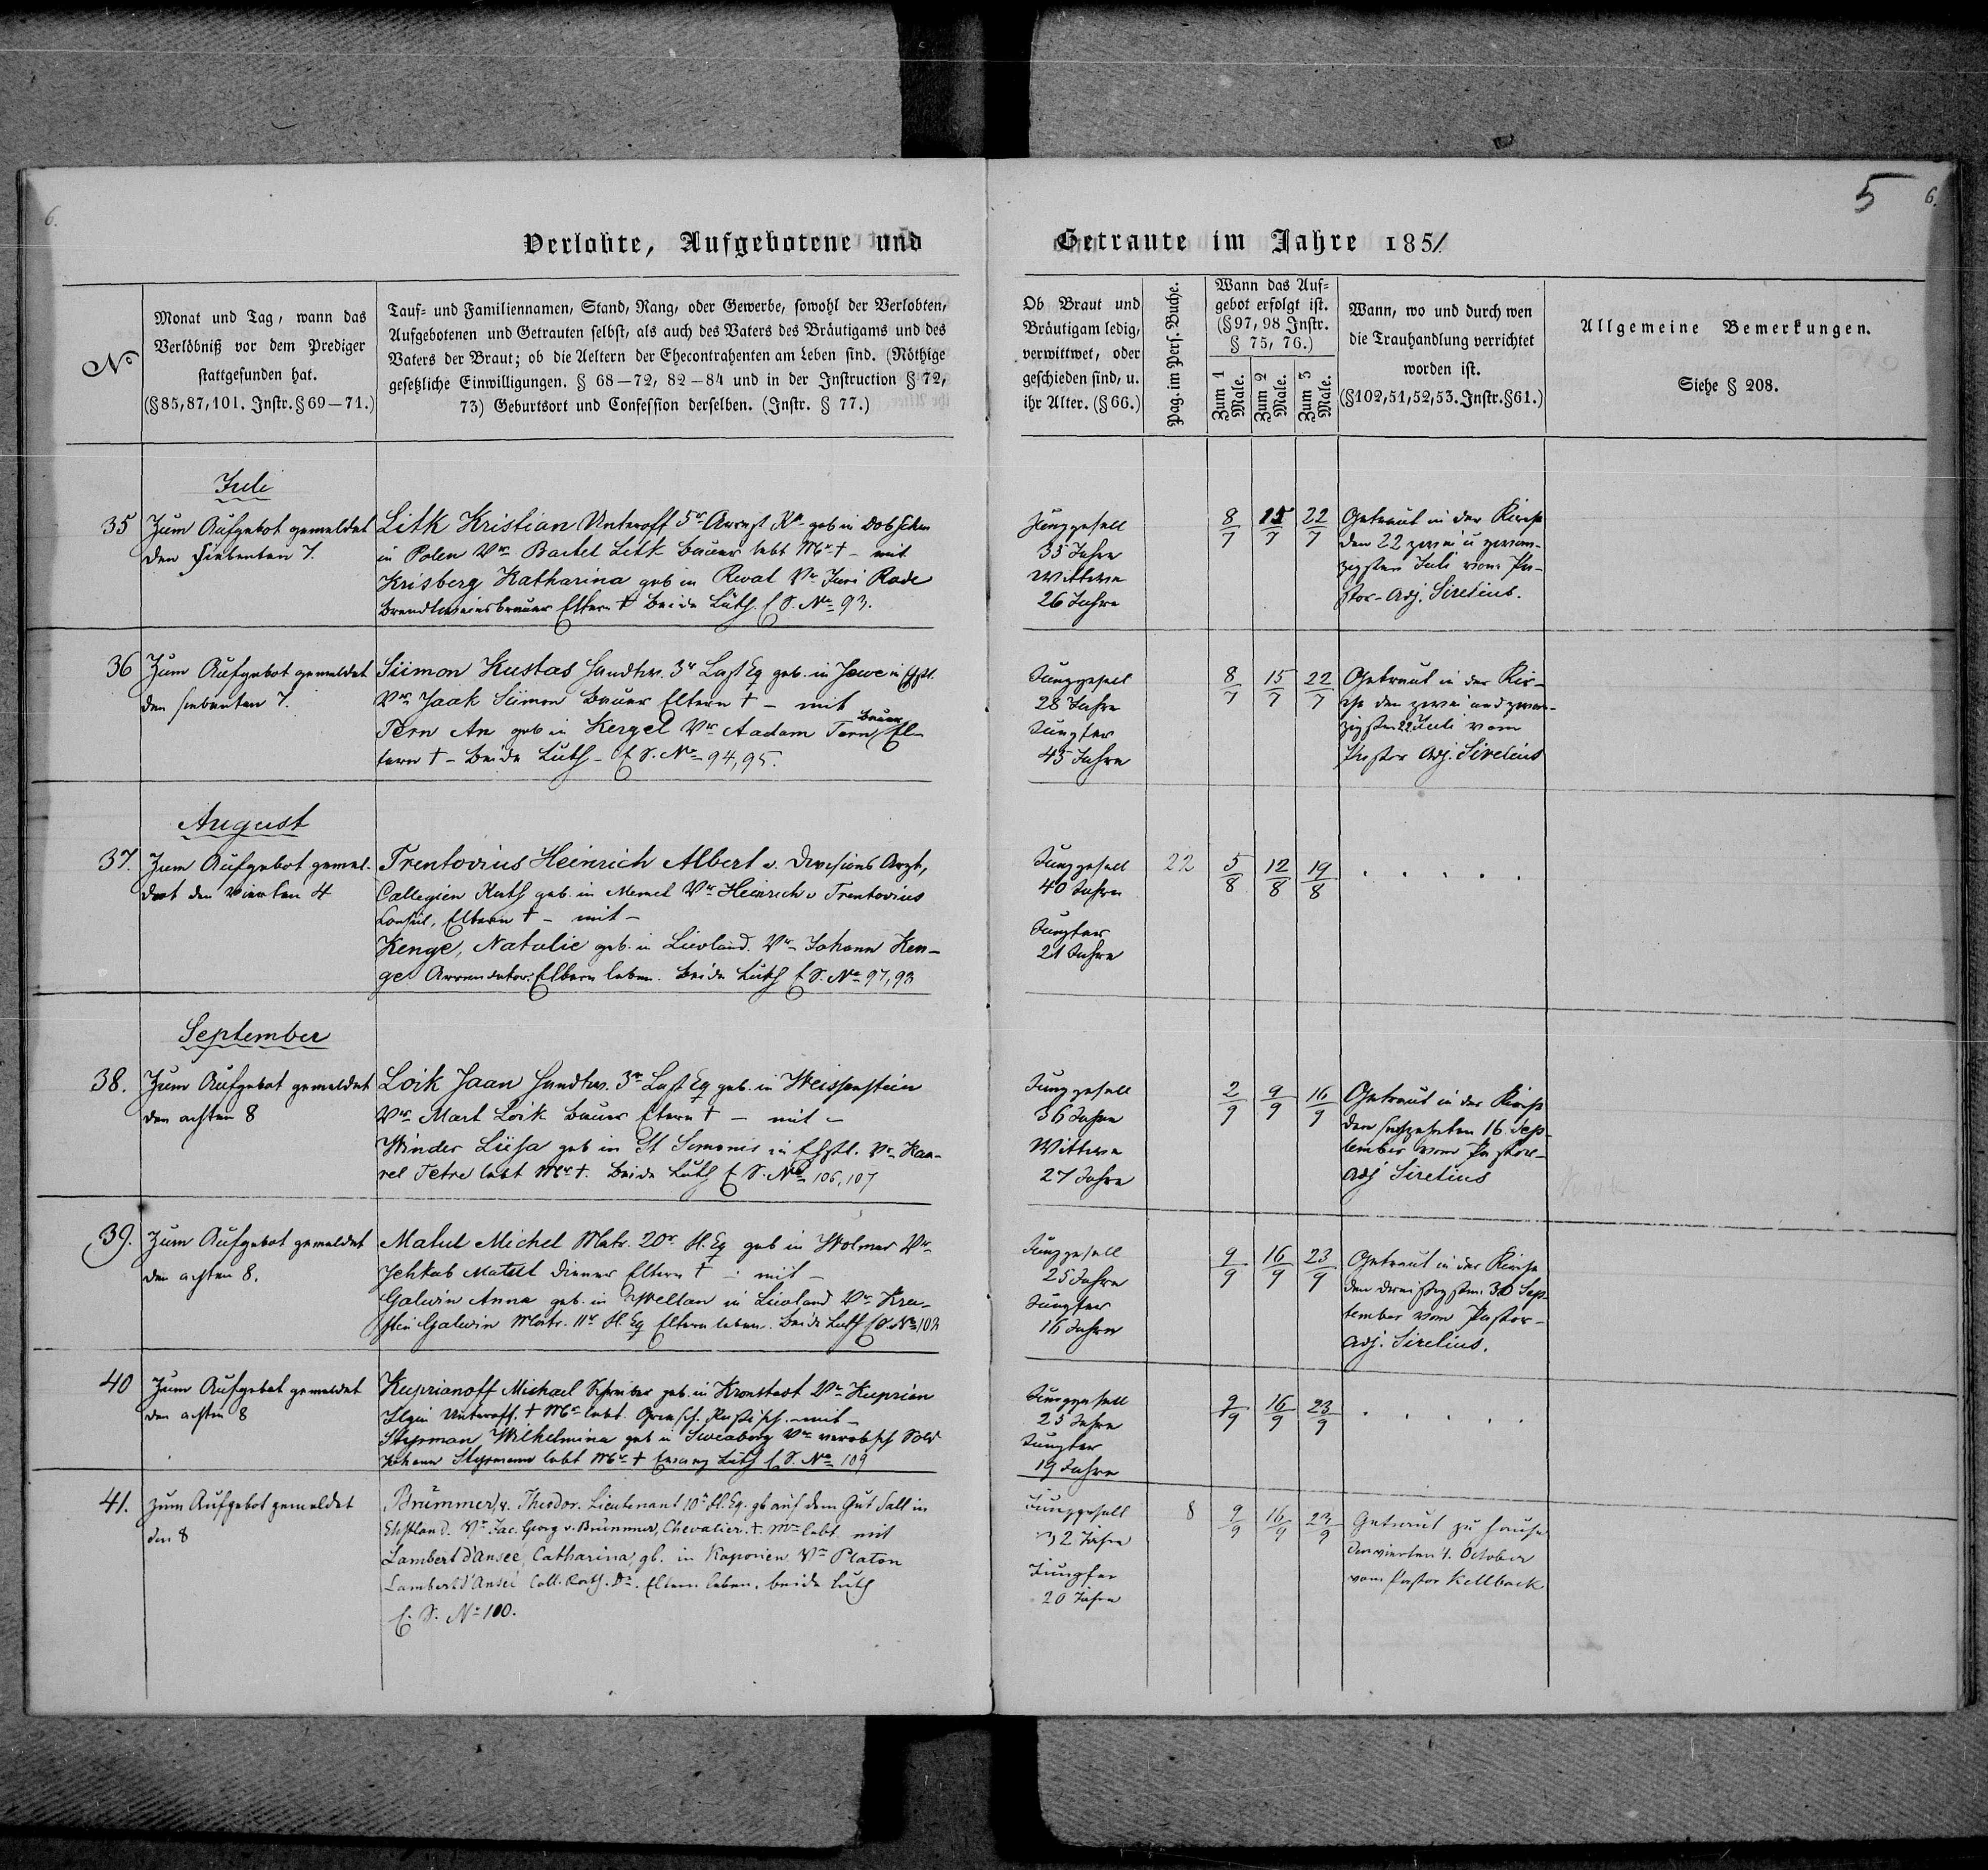 6.
5
6.
Verlobte, Aufgebotene und
Getraute im Jahre 1851.
No
Monat und Tag, wann das
Verlöbniß vor dem Prediger
stattgefunden hat.
(§85,87,101. Instr.§69—71.)
Tauf- und Familiennamen, Stand, Rang, oder Gewerbe, sowohl der Verlobten,
Aufgebotenen und Getrauten selbst, als auch des Vaters des Bräutigams und des
Vaters der Braut; ob die Aeltern der Ehecontrahenten am Leben sind. (Nöthige
gesetzliche Einwilligungen. § 68—72, 82—84 und in der Instruction § 72,
73) Geburtsort und Confession derselben. (Instr. § 77.)
Ob Braut und
Bräutigam ledig,
verwittwet, oder
geschieden sind, u.
ihr Alter. (§ 66.)
Pag. im Pers. Buche.
Wann das Auf-
gebot erfolgt ist.
(§ 97, 98 Instr.
§ 75, 76.)
Zum 1 Male.
Zum 2 Male.
Zum 3 Male.
Wann, wo und durch wen
die Trauhandlung verrichtet
worden ist.
(§102,51,52,53. Instr.§61.)
Allgemeine Bemerkungen.
Siehe § 208.
Juli
35
Zum Aufgebot gemeldet
den siebenten 7.
Litk Kristian Unteroff 5r Arrest geb in
in Polen Vr Bartel Litk Bauer lebt Mr † – mit
Krisberg Katharina geb in Reval Vr Juri Rode
Brandtweinsbrauer Eltern † Beide Luth. C S. No 93.
Junggesell
35 Jahre
Wittwe
26 Jahre
8/7 15/7 22/7
Getraut in der Kirche
den 22 zwei u zwan-
zigsten Juli vom Pa-
stor-Adj. Sirelius.
36
Zum Aufgebot gemeldet
den siebenten 7.
Siimon Kustas Handw. 3r Last Eq geb. in Jewe in Ehstl.
Vr Jaak Siimon Bauer Eltern † – mit
Tern An geb in Kergel Vr Aadam Tern Bauer, El-
tern † – Beide Luth – C S. No 94, 95.
Junggesell
28 Jahre
Jungfer
45 Jahre
8/7 15/7 22/7
Getraut in der Kir-
che den zwei und zwan-
zigsten 22 Juli vom
Pastor Adj. Sirelius
August
37.
Zum Aufgebot gemel-
det den Vierten 4
Trentovius Heinrich Albert v. Divisions Arzt,
Collegien Rath geb. in Memel Vr Heinrich v Trentovius
Consul, Eltern † – mit –
Kenge, Natalie geb. in Livland. Vr Johann Ken-
ge Arrendator. Eltern leben. Beide Luth C S. No 97, 98
Junggesell
40 Jahre
Jungfer
21 Jahre
22
5/8 12/8 19/8
. . . . .
September
38.
Zum Aufgebot gemeldet
den achten 8
Loik Jaan Handw. 3r Last Eq geb. in Weissenstein
Vr Mart Loik Bauer Eltern † – mit –
Winder Liisa geb in St Simonis in Ehstl. Vr Kaa-
rel Tetre lebt Mr †. Beide Luth C S. No 106, 107
Junggesell
36 Jahre
Wittwe
27 Jahre
2/9 9/9 16/9
Getraut in der Kirche
den sechszehnten 16 Sep-
tember vom Pastor-
Adj Sirelius
39.
Zum Aufgebot gemeldet
den achten 8.
Matul Michel Matr. 20r Fl. Eq geb in Wolmar Vr
Jehkab Matul Diener Eltern † – mit –
Galwin Anna geb. in Livland Vr Kri-
stin Galwin Matr. 11r Fl. Eq Eltern leben. Beide Luth C S. No 102
Junggesell
25 Jahre
Jungfer
16 Jahre
9/9 16/9 23/9
Getraut in der Kirche
den dreissigsten 30 Sep-
tember vom Pastor-
Adj. Sirelius.
40
Zum Aufgebot gemeldet
den achten 8
Kuprianoff Michael Schreiber geb. in Kronstadt Vr Kuprian
Ilgin Unteroff. † Mr lebt. Griech. Russisch. – mit –
Stypman Wilhelmina geb in Sweaborg Vr verabsch Sold
Johann Stypmann lebt Mr † Evang Luth C S. No 109
Junggesell
25 Jahre
Jungfer
19 Jahre
9/9 16/9 23/9
. . . . .
41.
Zum Aufgebot gemeldet
den 8
Brümmer, v. Theodor. Lieutenant 10r Fl. Eq. gb auf dem Gut Sall in
Ehstland. Vr Jac. Georg v. Brümmer, Chevalier. † Mr lebt. mit
Lambert d'Anseé, Catharina, gb. in Kaporien. Vr Platon
Lambert d'Anseé Coll. Rath. Dr. Eltern leben, beide luth
C. S. No 100.
Junggesell
32 Jahre
Jungfer
20 Jahre
8
9/9 16/9 23/9
Getraut zu Hause
den vierten 4. October
vom Pastor Kellback